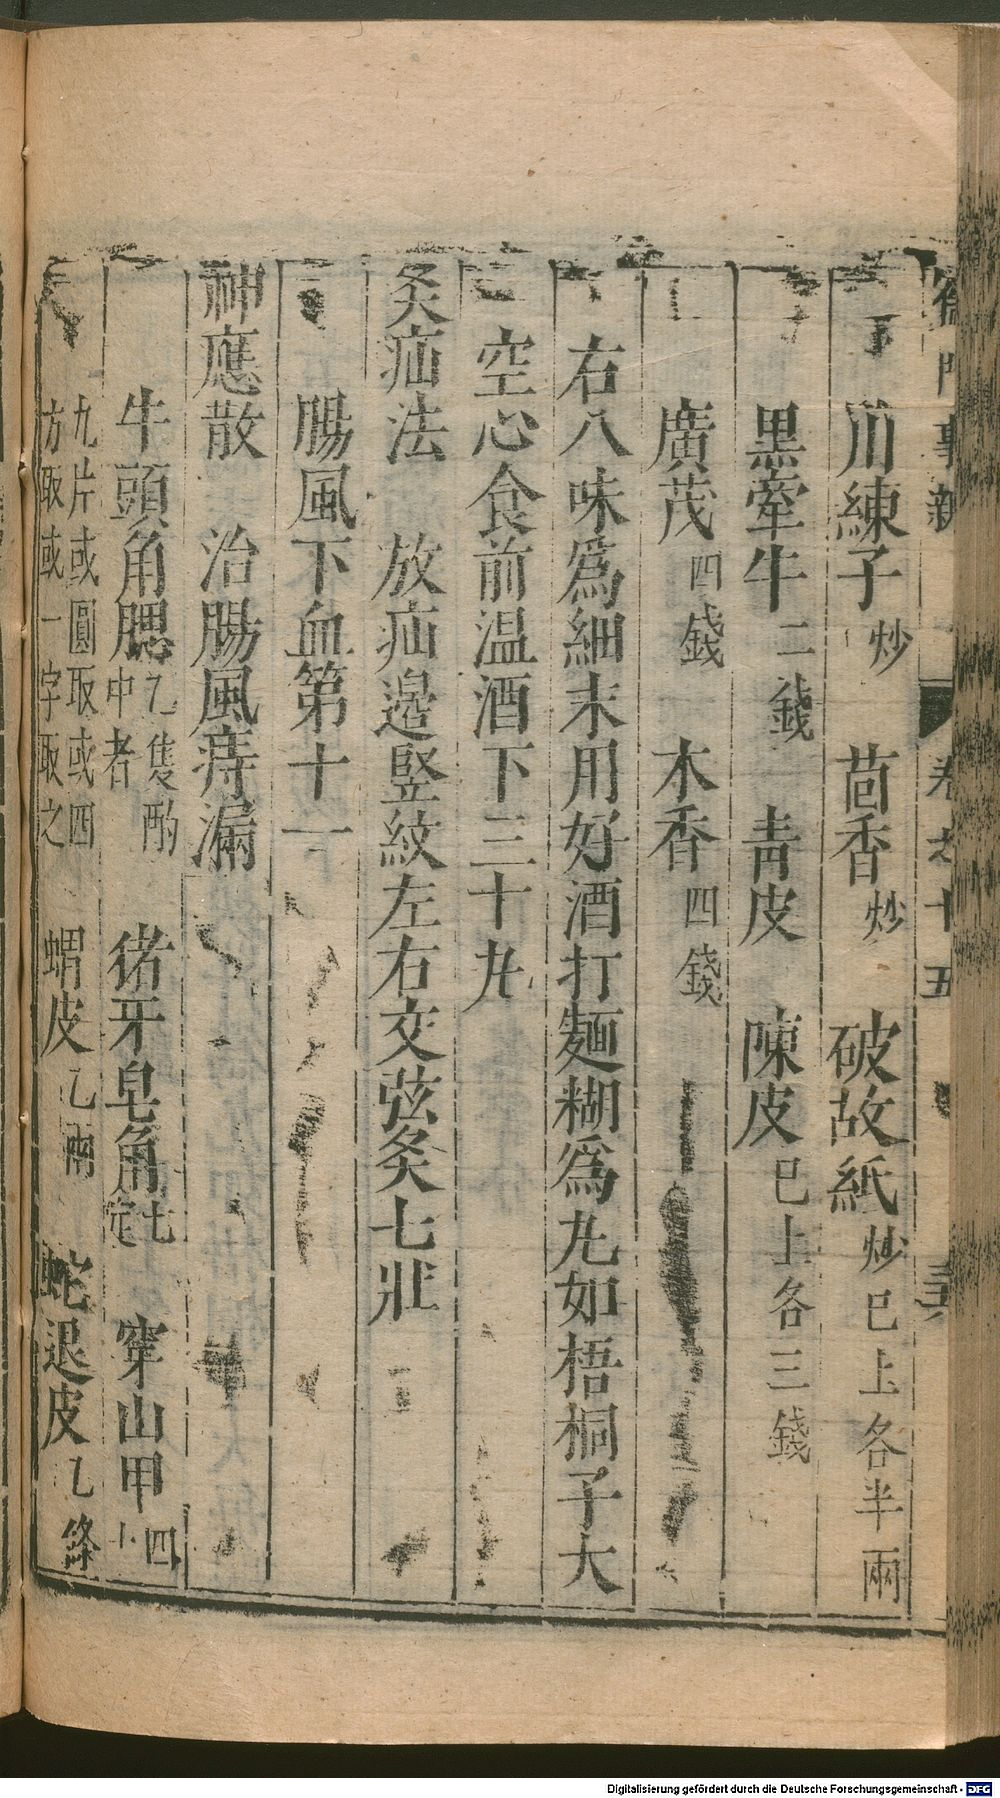 儒門事親 卷之十五
川練子炒 茴香炒 破故紙炒已上各半兩
黑牽牛二錢 青皮 陳皮已上各三錢
廣茂四錢 木香四錢
右八味爲細末用好酒打麵糊爲丸如梧桐子大
空心食前温酒下三十丸
灸疝法 放疝邊竪紋左右交弦灸七壯
腸風下血第十一
神應散 治腸風痔漏
牛頭角腮乙隻酌中者 猪牙皂角七定 穿山甲四
九片或圓取或四
方取或一字取之 蝟皮乙兩 蛇退皮乙絳
Digitalisierung gefördert durch die Deutsche Forschungsgemeinschaft - DFG